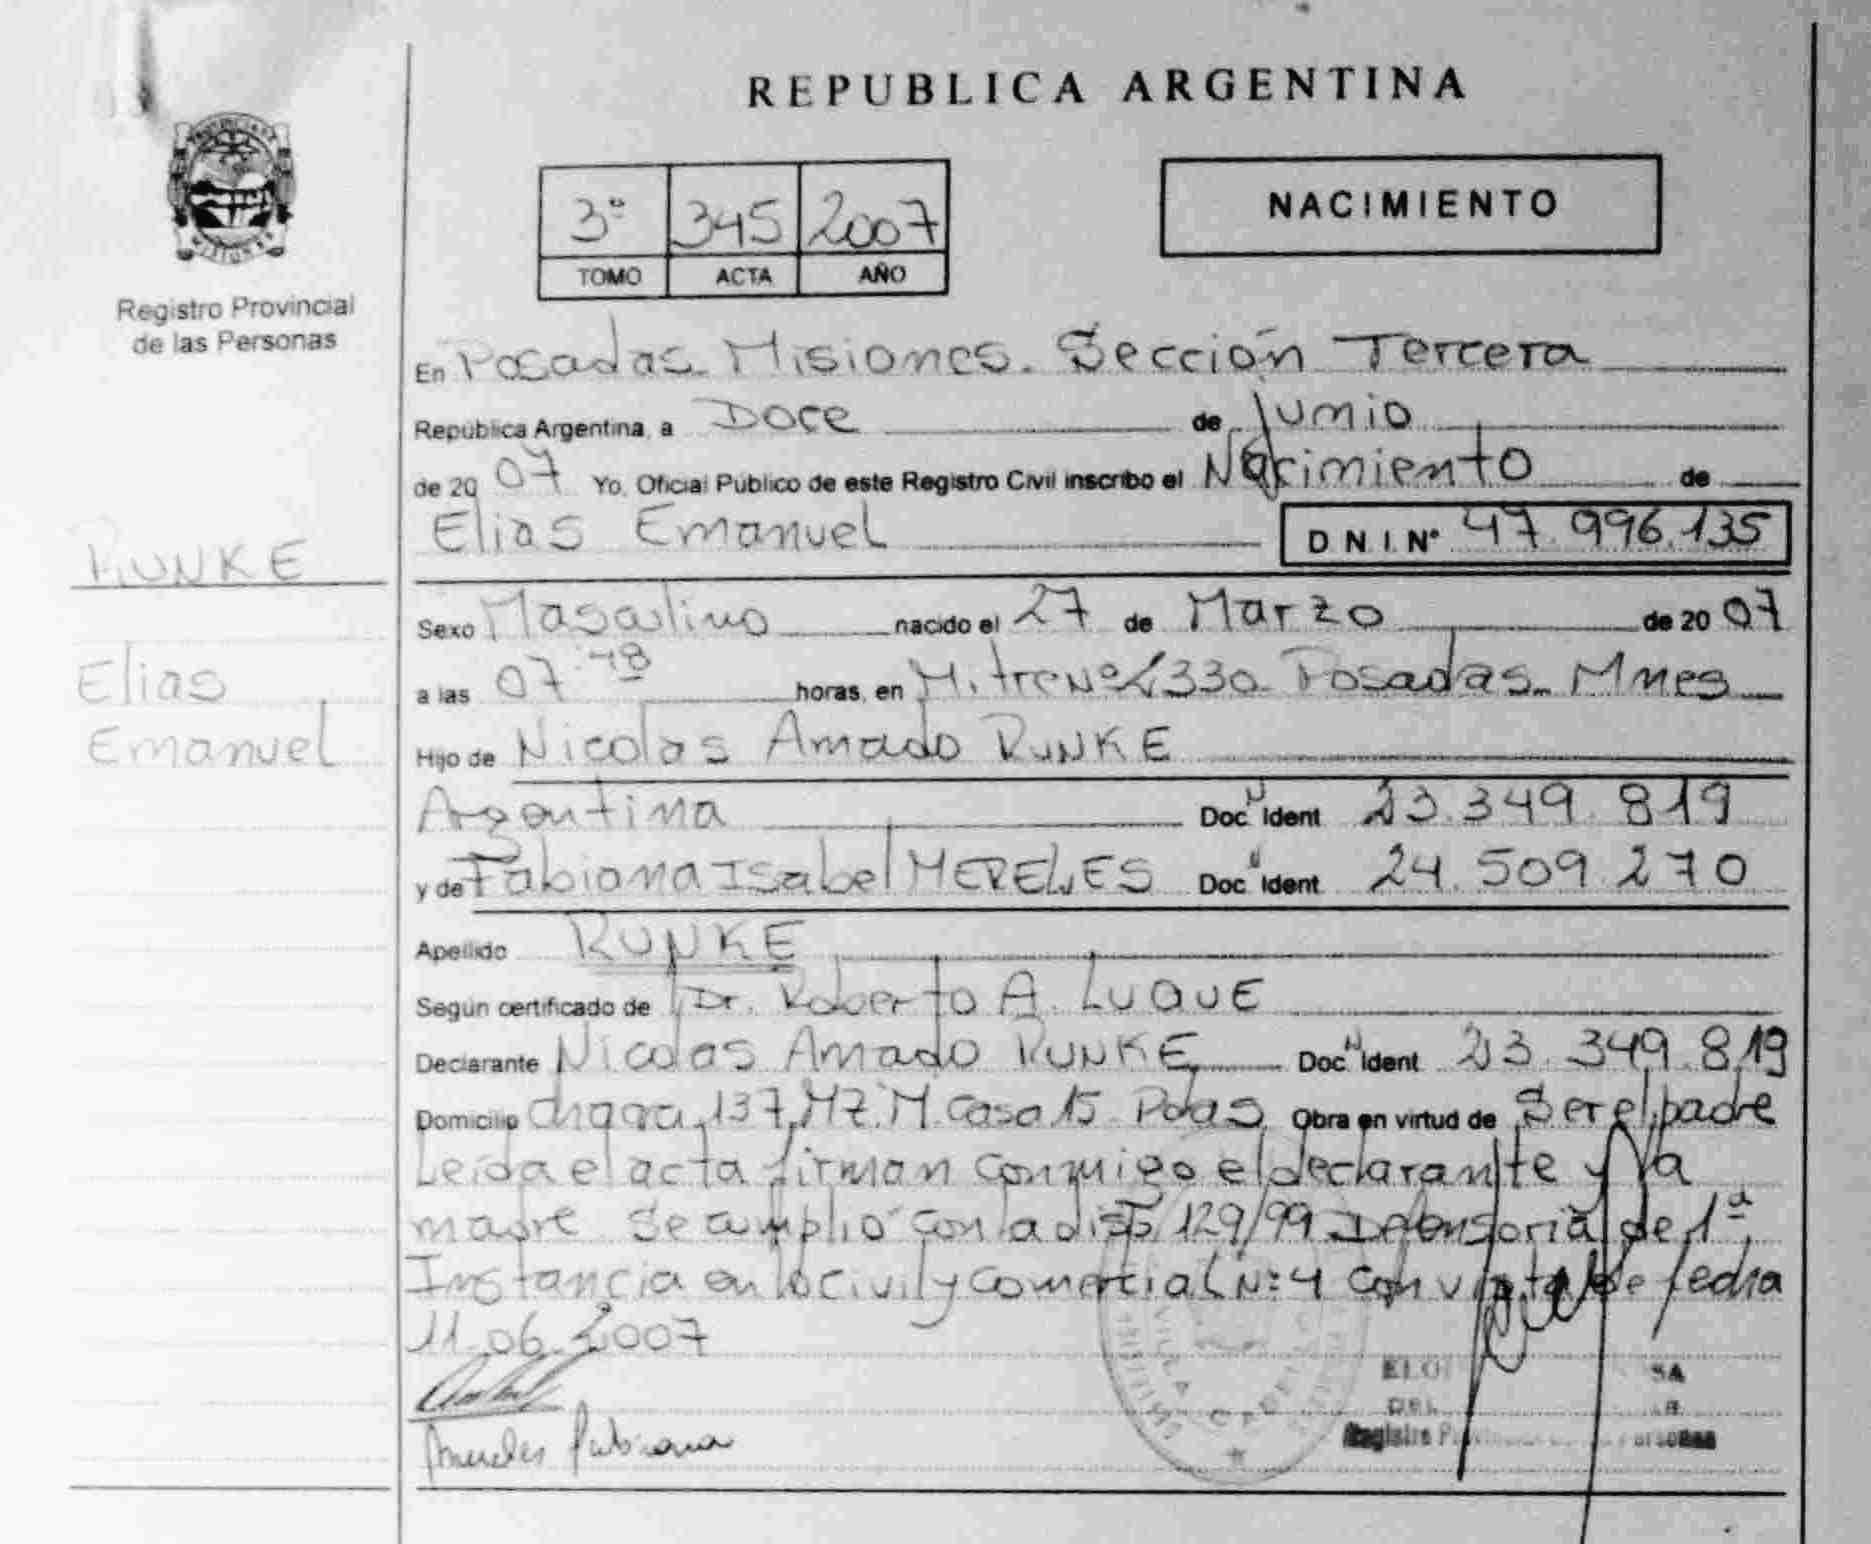 REPUBLICA ARGENTINA
3º 345 2007
TOMO ACTA AÑO
NACIMIENTO
Registro Provincial
de las Personas
En Posadas Misiones. Sección Tercera
República Argentina, a Doce de Junio
de 2007 Yo, Oficial Público de este Registro Civil inscribo el Nacimiento de
Elias Emanuel DNI Nº 47.996.135
RUNKE
Sexo Masculino nacido el 27 de Marzo de 2007
Elias
a las 07:48 horas, en Mitre Nº 2330 Posadas Mnes
Emanuel
Hijo de Nicolas Amado RUNKE
Argentina Doc. N Ident 23.349.819
y de Fabiana Isabel MERELES Doc. N Ident 24.509.270
Apellido RUNKE
Según certificado de Dr. Roberto A. LUQUE
Declarante Nicolas Amado RUNKE Doc. N Ident 23.349.819
Domicilio chacra 137, MZ. M. Casa 15 Pdas Obra en virtud de Ser el padre
Leida el acta firman conmigo el declarante y la
madre Se cumplió con la disp 129/99 Defensoria de 1ª
Instancia en lo Civil y Comercial Nº 4 con vista de fecha
11.06.2007
Mereles Fabiana
Registro